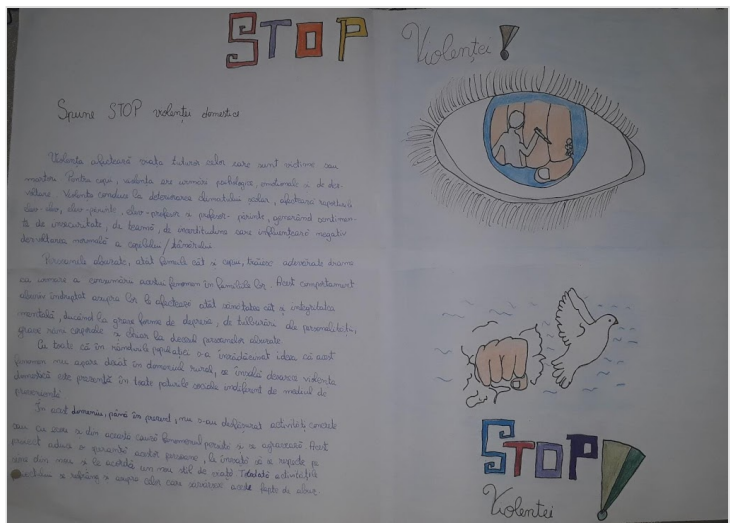 STOP
Violenței!
Spune STOP violenței domestice
Violența afectează viața tuturor celor care sunt victime sau
martori. Pentru copii, violența are urmări psihologice, emoționale și de dez-
voltare. Violența conduce la deteriorarea climatului școlar, afectează
elev-elev, elev-părinte, elev-profesor și profesor-părinte, generând
de insecuritate, de teamă, de incertitudine care influențează negativ
dezvoltarea normală a copilului/tânărului.
Persoanele abuzate, atât femeile cât și copiii, trăiesc adevărate drame
ca urmare a acestui fenomen în familiile lor. Acest comportament
abuziv îndreptat asupra lor le afectează atât sănătatea cât și integritatea
mentală, ducând la grave forme de depresie, de tulburări ale personalității,
grave răni corporale și chiar la decesul persoanelor abuzate.
Cu toate că în rândurile populației s-a înrădăcinat ideea că acest
fenomen nu apare decât în domeniul rural, se deoarece violența
domestică este prezentă în toate păturile sociale indiferent de mediul de
proveniență.
În acest domeniu, până în prezent, nu s-au desfășurat activități concrete
și din această cauză fenomenul persistă și se agravează. Acest
proiect aduce o garanție acestor persoane, le învață să se respecte pe
sine din nou și le acordă un nou stil de viață. activitățile
proiectului se răsfrâng și asupra celor care aceste fapte de abuz.
STOP!
Violenței